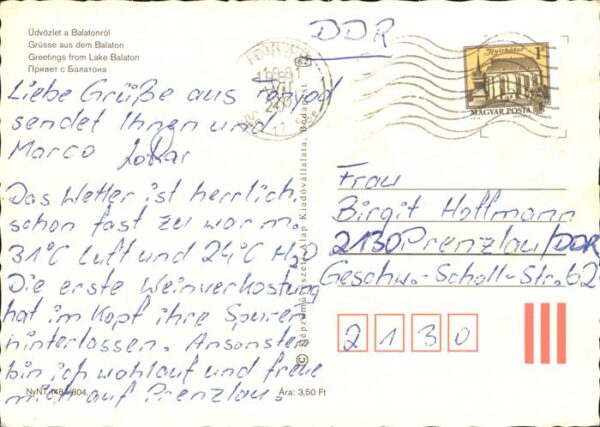 Üdvözlet a Balatonról
Grüsse aus dem Balaton
Greetings from Lake Balaton
Привет с Балатона
DDR
Nyírbátor
1 Ft
MAGYAR POSTA
Liebe Grüße aus Fonyod
sendet Ihnen und
Marco
Das Wetter ist herrlich,
schon fast zu warm.
31°C Luft und 24°C H2O
Die erste Weinverkostung
hat im Kopf ihre Spuren
hinterlassen. Ansonsten
bin ich wohlauf und freue
mich auf Prenzlau.
© Képzőművészeti Alap Kiadóvállalata, Budapest
Frau
Birgit Hoffmann
2130 Prenzlau/DDR
Geschw.-Scholl-Str. 62
2130
Ára: 3,50 Ft